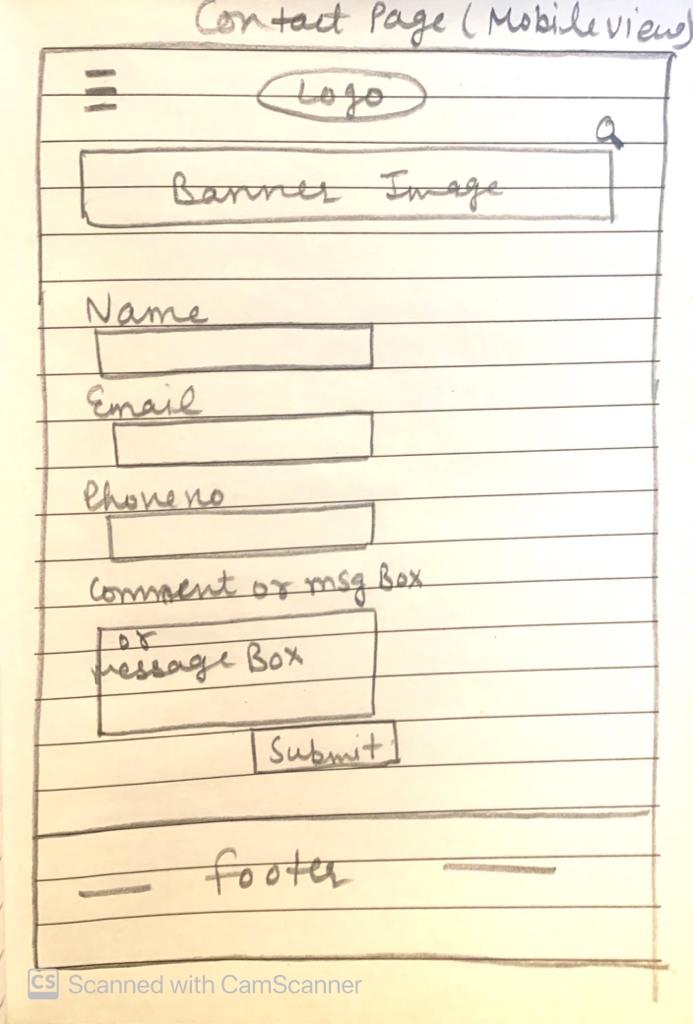 Contact Page (Mobile view)
Logo
Banner Image
Name
Email
Phone no
Comment or msg Box
or
message Box
Submit
footer
CS Scanned with CamScanner